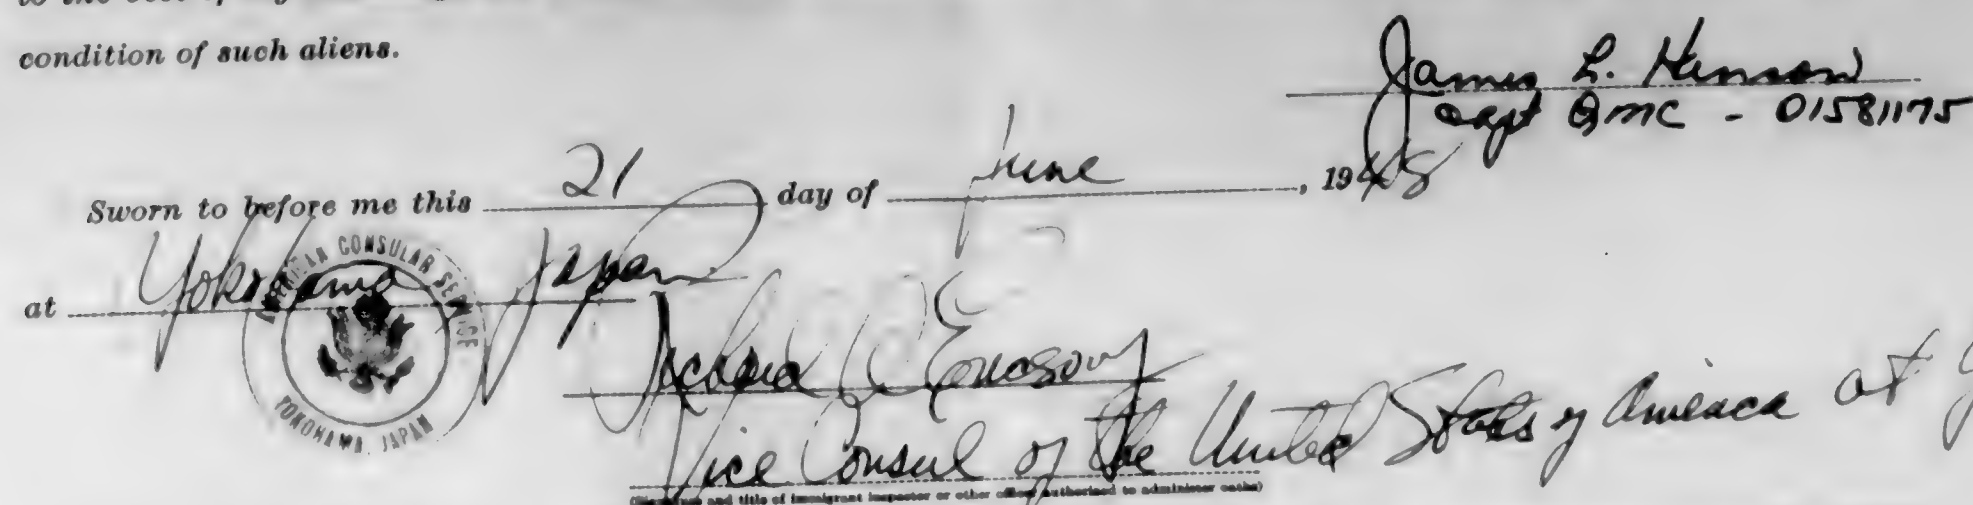 to the best of
condition of such aliens.
James L. Hanson
Capt QMC - 01581175
Sworn to before me this 21 day of June, 1948
at Yokohama Japan
AMERICAN CONSULAR SERVICE
YOKOHAMA, JAPAN
Richard Ericson
Vice Consul of the United States of America at
(Signature and title of immigrant inspector or other officer authorized to administer oaths)